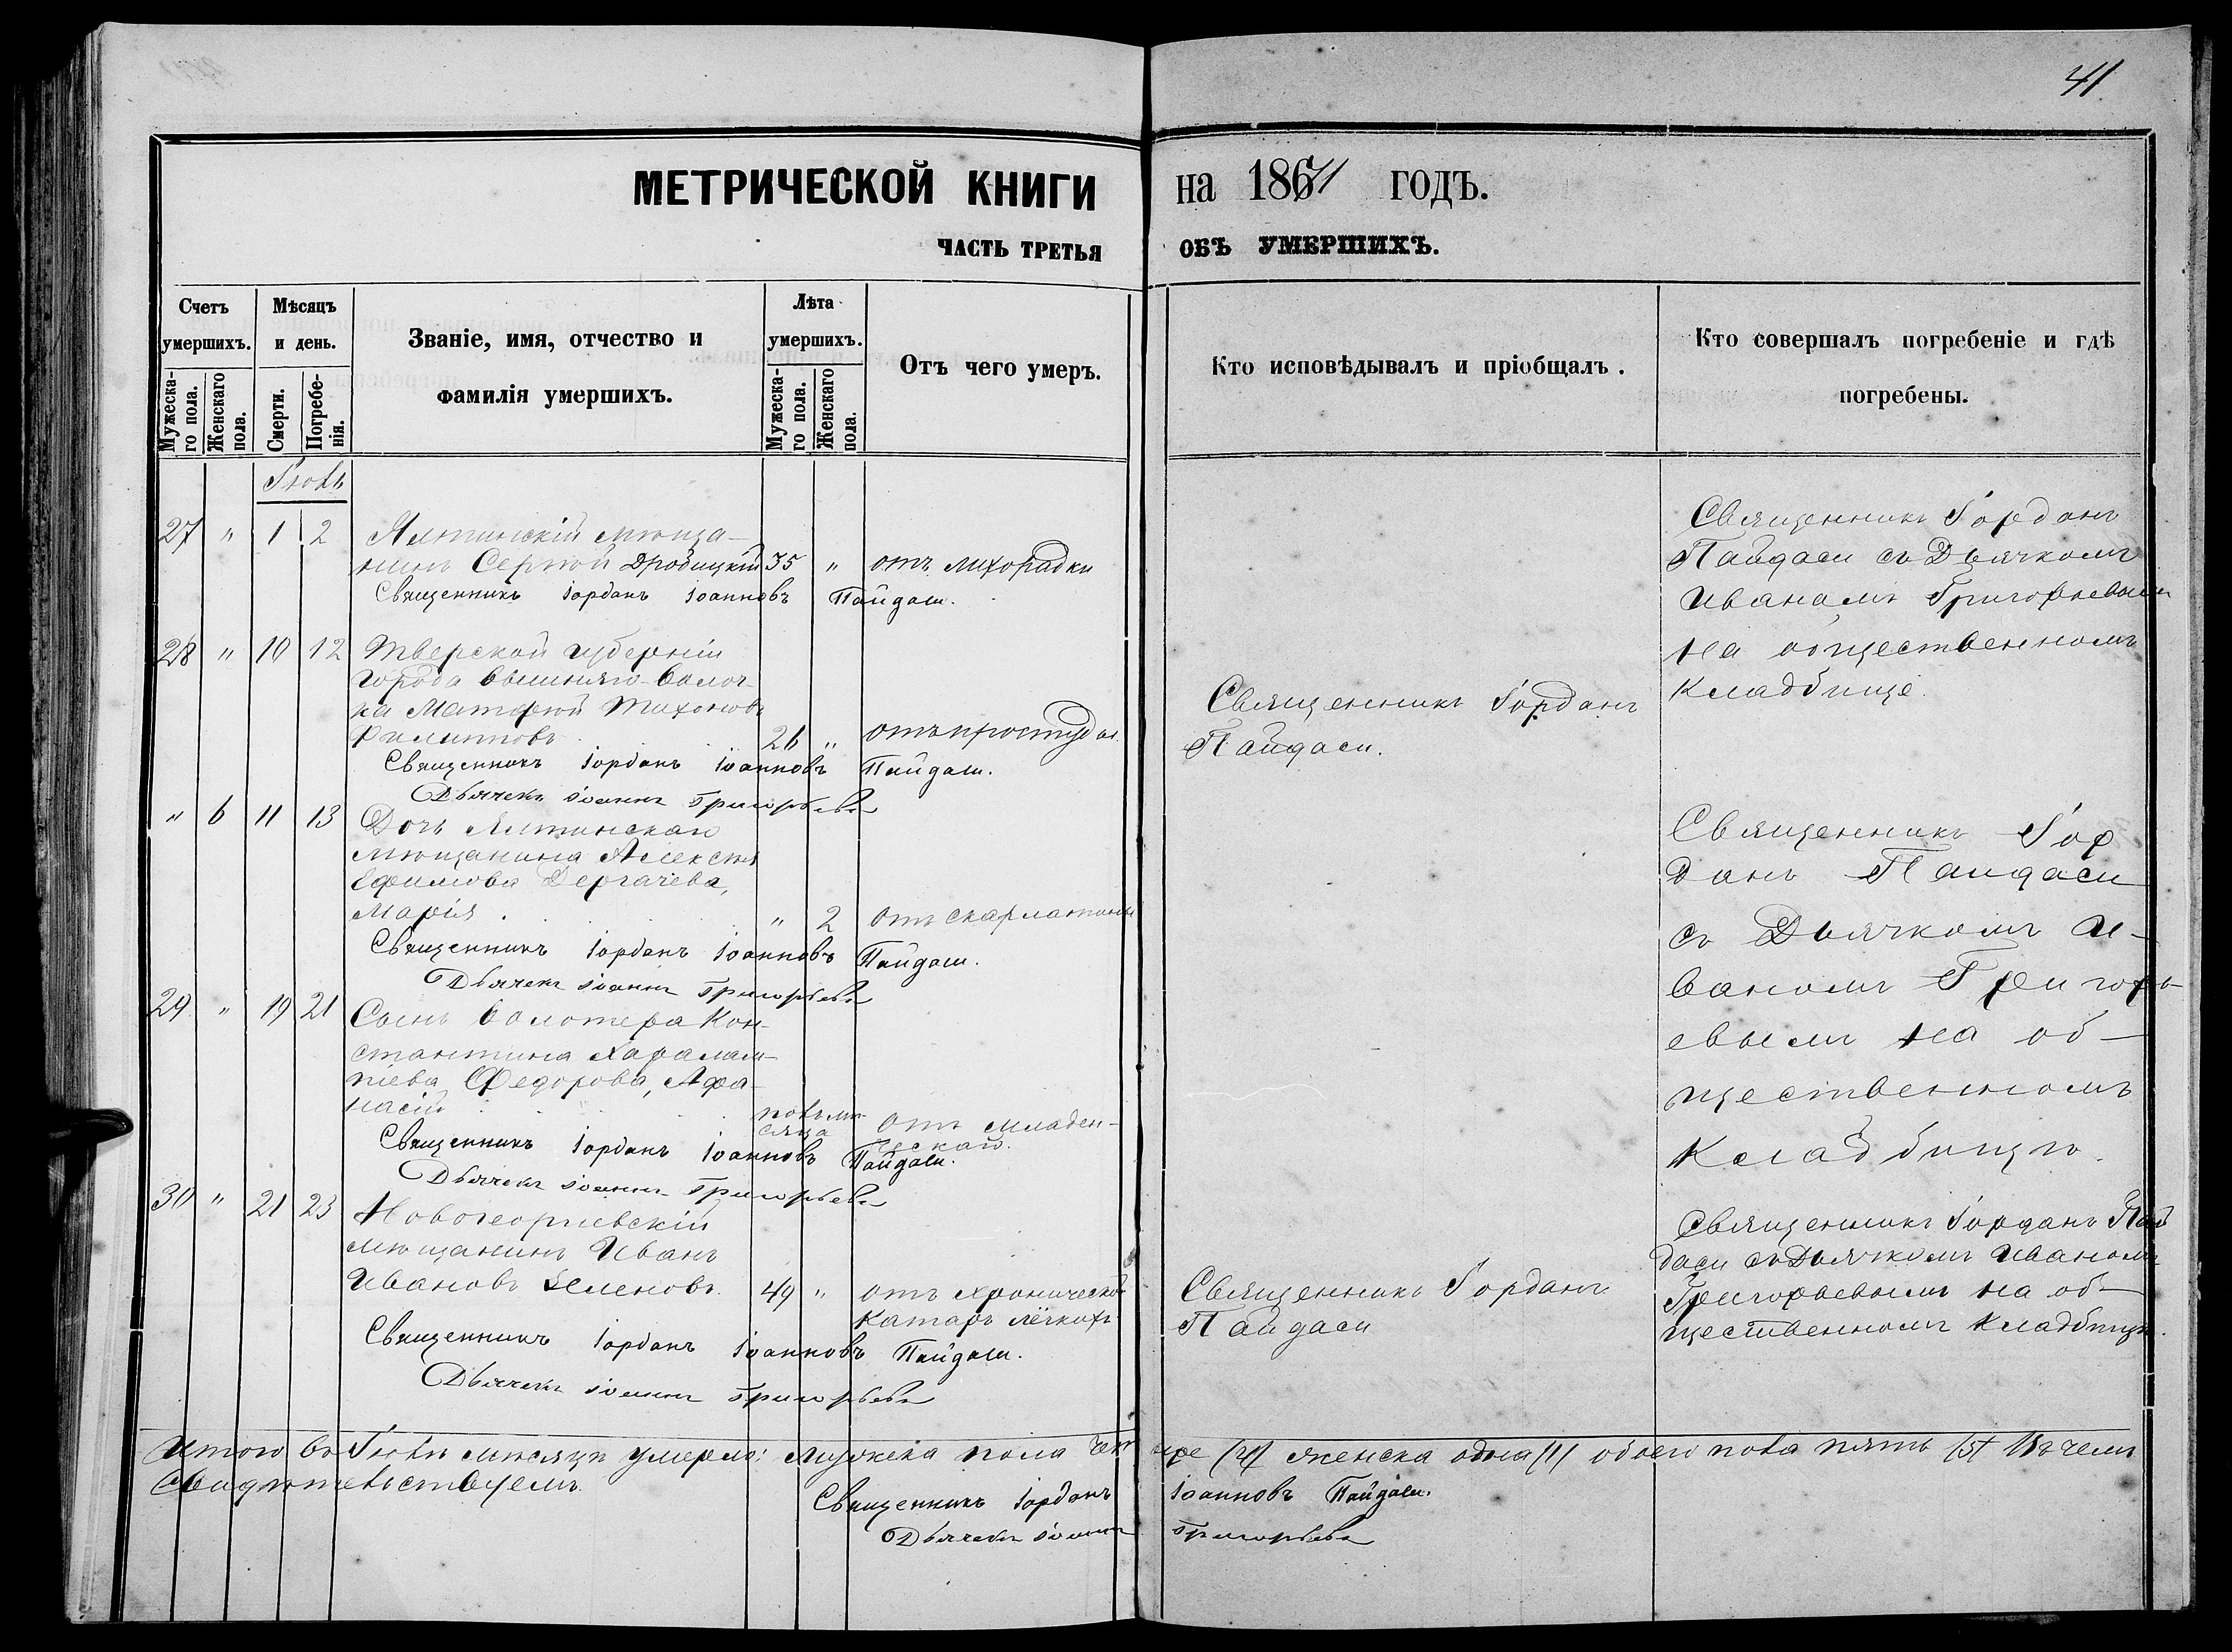 41
МЕТРИЧЕСКОЙ КНИГИ на 1864 ГОДЪ.
ЧАСТЬ ТРЕТЬЯ ОБЪ УМЕРШИХЪ.
Счетъ умершихъ.
Мужеска-
го пола.
Женскаго
пола.
Мѣсяцъ и день.
Смерти.
Погребе-
нія.
Званіе, имя, отчество и
фамилія умершихъ.
Лѣта умершихъ.
Мужеска-
го пола.
Женскаго
пола.
Отъ чего умеръ.
Кто исповѣдывалъ и пріобщалъ.
Кто совершалъ погребеніе и гдѣ
погребены.
Іюнь
27 " 1 2 Ялтинскій мѣща-
нинъ Сергѣй Дробицкій 35 " отъ лихорадки
Священникъ Іорданъ Іоанновъ Пайдаси.
Священникъ Іорданъ
Пайдаси съ Дьячкомъ
Иваномъ Григорьевымъ
на общественномъ
кладбище.
28 " 10 12 Тверской губерніи
города Вышняго-Волоч-
ка Матфей Тихоновъ
Филиповъ 26 " отъ простуды
Священникъ Іорданъ Іоанновъ Пайдаси.
Дьячекъ Іоаннъ Григорьевъ
Священникъ Іорданъ
Пайдаси.
" 6 11 13 Дочь Ялтинскаго
мѣщанина Алексѣя
Ефимова Дергачева,
Марія . " 2 отъ скарлатины
Священникъ Іорданъ Іоанновъ Пайдаси.
Дьячекъ Іоаннъ Григорьевъ
Священникъ Іор
данъ Пайдаси
съ Дьячкомъ И-
ваномъ Григорь-
евымъ на об-
щественномъ
кладбищѣ.
29 " 19 21 Сынъ волотера Кон-
стантина Харалам-
піева Федорова, Афа-
насій полъ мѣ-
сяца отъ младен-
ческаго.
Священникъ Іорданъ Іоанновъ Пайдаси.
Дьячекъ Іоаннъ Григорьевъ
30 " 21 23 Новогеоргіевскій
мѣщанинъ Иванъ
Ивановъ Зеленовъ. 49 " отъ хроническо
катаръ лёгкихъ
Священникъ Іорданъ Іоанновъ Пайдаси.
Дьячекъ Іоаннъ Григорьевъ
Священникъ Іорданъ
Пайдаси
Священникъ Іорданъ Пай
даси съ Дьячкомъ Иваномъ
Григорьевымъ на об-
щественномъ кладбищѣ.
Итого въ Іюнѣ мѣсяцѣ умерло: мужеска пола четыре (4) женска одна (1) обоего пола пять (5) Въ чемъ
свидѣтельствуемъ.
Священникъ Іорданъ Іоанновъ Пайдаси.
Дьячекъ Іоаннъ Григорьевъ